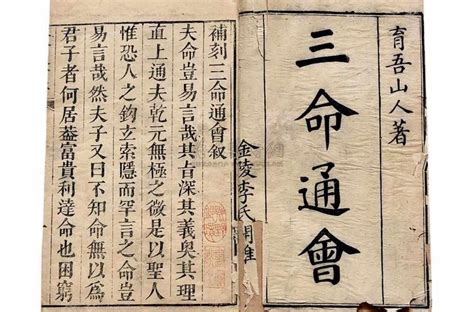 育吾山人著
三命通會
金陵李氏
補刻三命通會敘
夫命豈易言哉其旨深其義奥其理
直上通夫乾元無極之微是以聖人
惟恐人之鉤玄索隱而罕言之命豈
易言哉然夫子又曰不知命無以爲
君子者何居葢富貴利達命也困窮